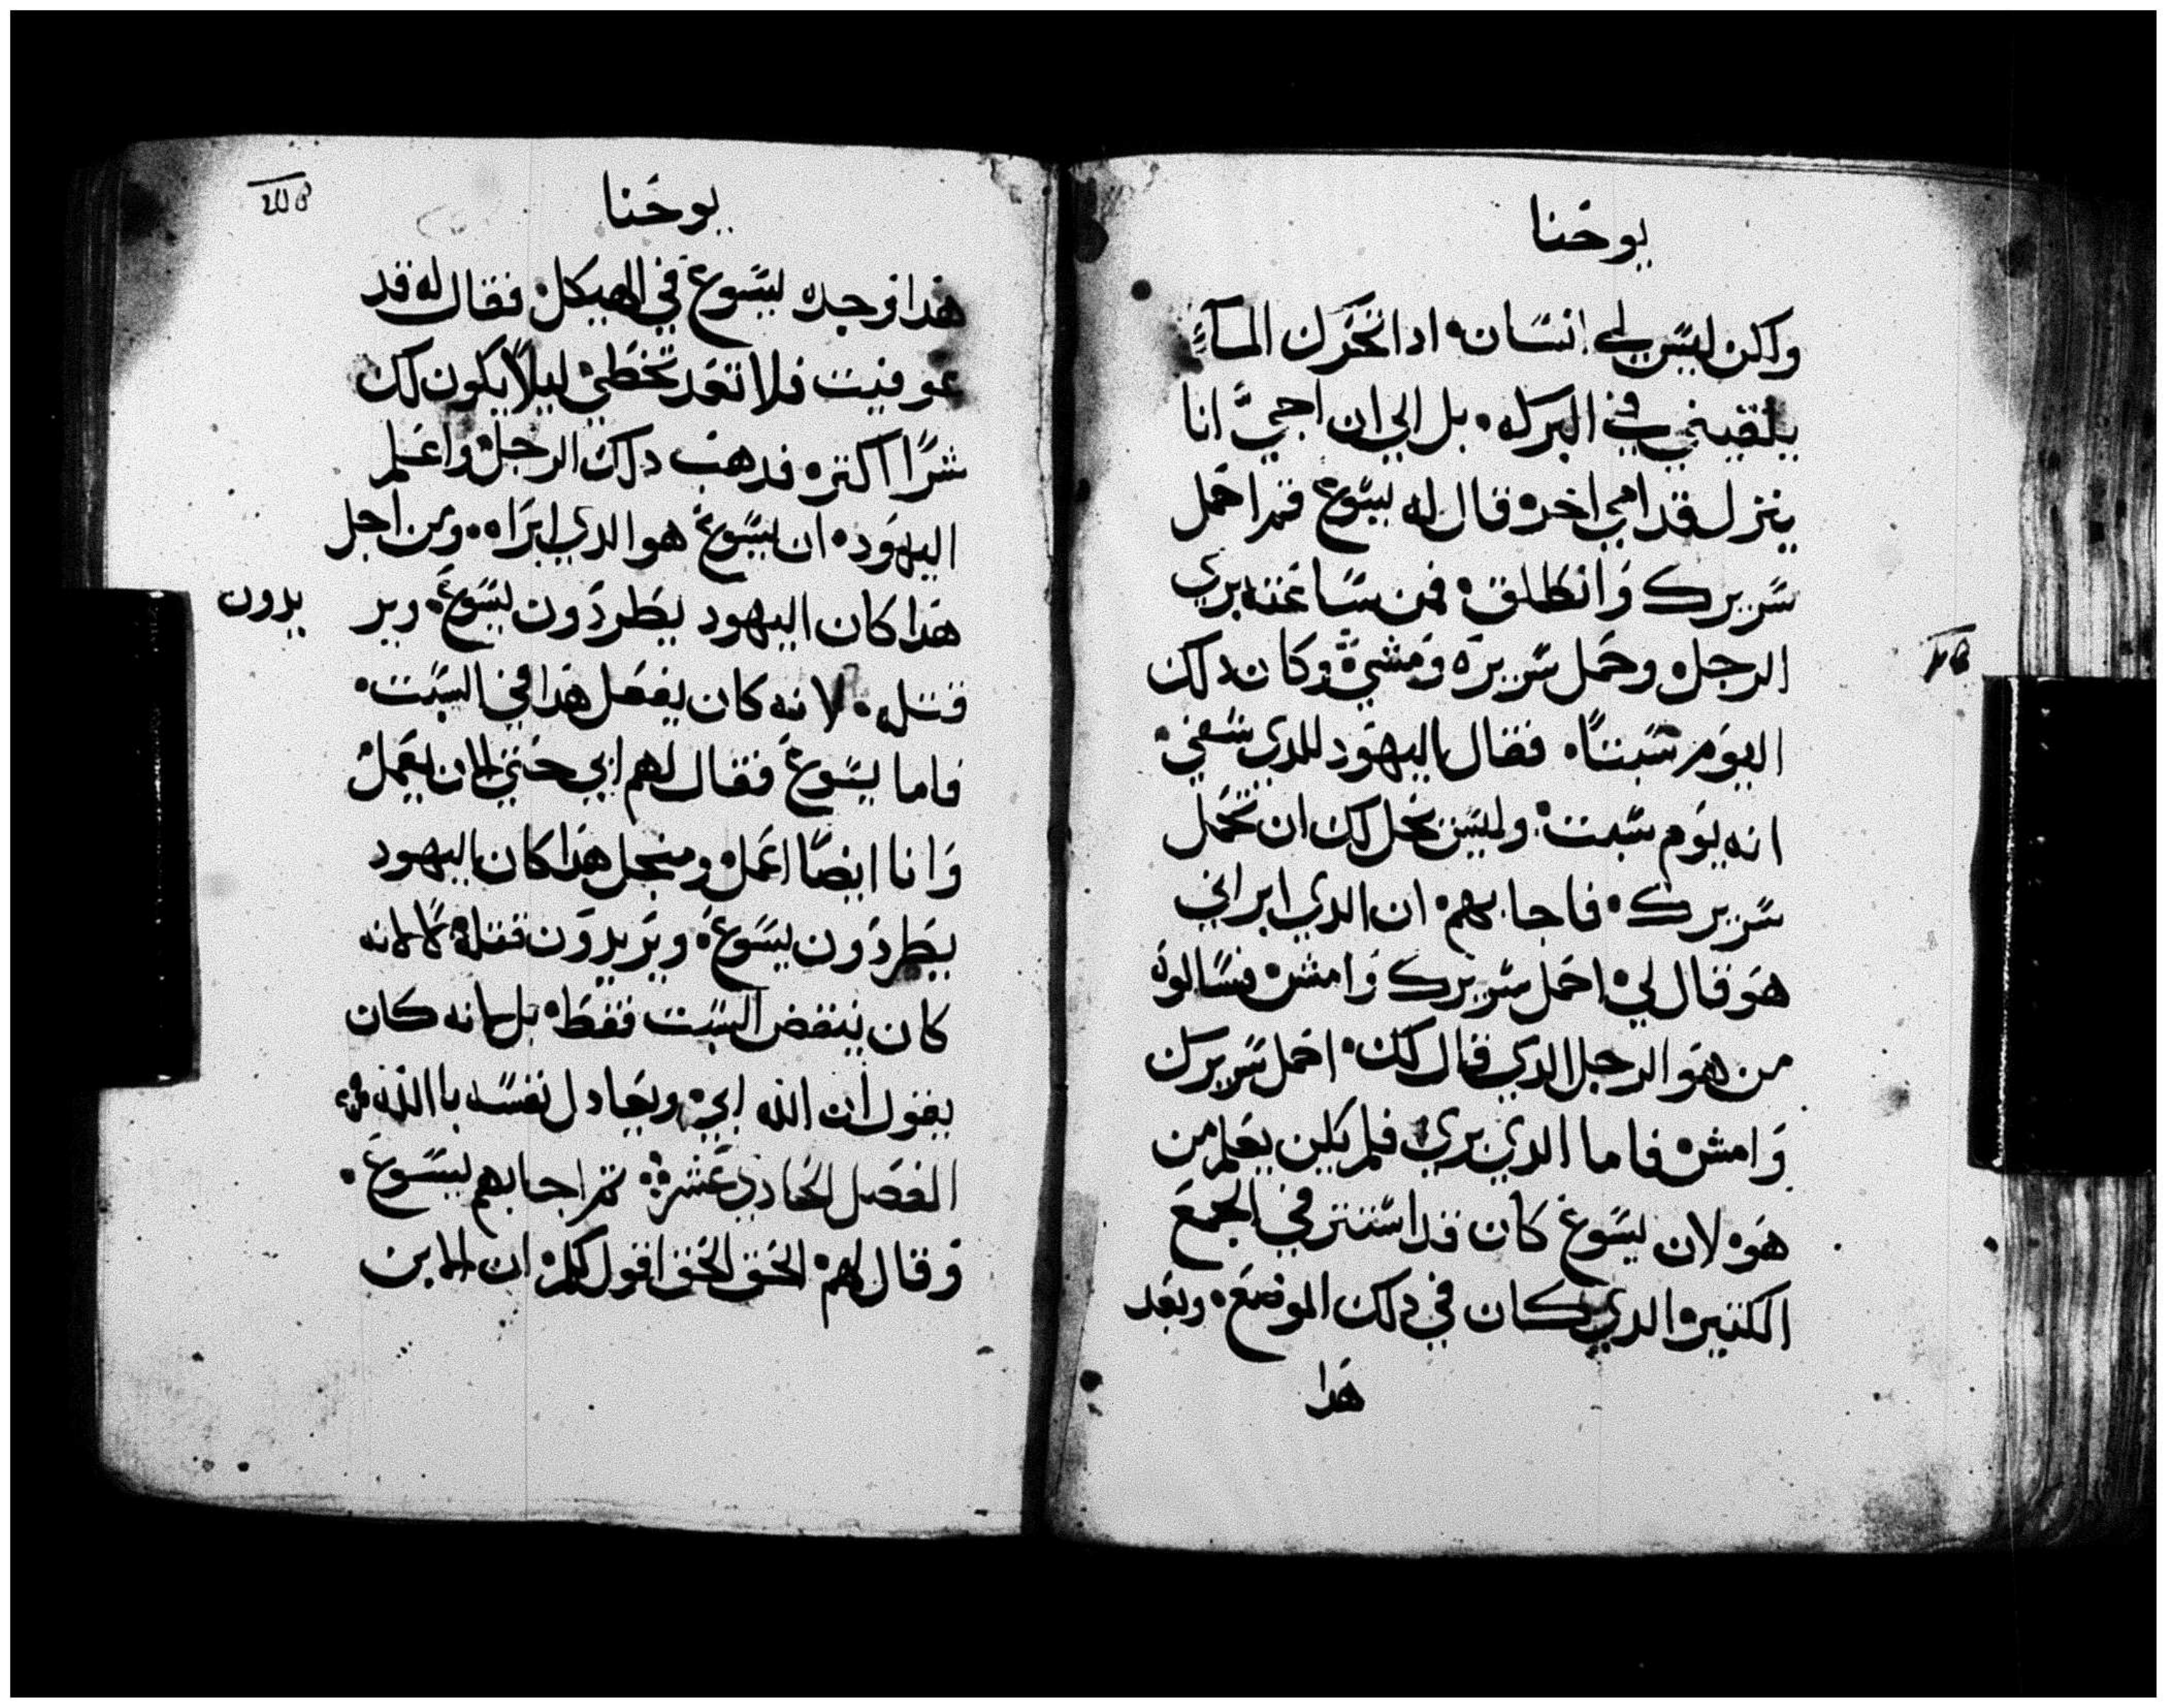 يوحنا
ولكن ليس لي انسان ادا تحرك الماء
يلقيني في البركه بل الي ان اجي انا
ينزل قدامي اخر قال له يسوع قم احمل
سريرك وانطلق فمن ساعته بري
الرجل وحمل سريره ومشي وكان دلك
اليوم سبتا فقال اليهود للدي شفي
انه يوم سبت وليس يحل لك ان تحمل
سريرك فاجابهم ان الدي ابراني
هو قال لي احمل سريرك وامش فسالوه
من هو الرجل الدي قال لك احمل سريرك
وامش فاما الدي بري فلم يكن يعلم من
هو لان يسوع كان قد استتر في الجمع
الكتير الدي كان في دلك الموضع وبعد
هدا
يوحنا
هدا وجده يسوع في الهيكل فقال له قد
عوفيت فلا تعد تخطي ليلا يكون لك
شرا اكتر فدهب دلك الرجل واعلم
اليهود ان يسوع هو الدي ابراه ومن اجل
هدا كان اليهود يطردون يسوع وير
يدون
قتله لانه كان يفعل هدا في السبت
فاما يسوع فقال لهم ابي حتي الان يعمل
وانا ايضا اعمل ومنجل هدا كان اليهود
يطردون يسوع ويريدون قتله لا لانه
كان ينقض السبت فقط بل لانه كان
يقول ان الله ابي ويعادل نفسه باالله
الفصل الحادي عشر تم اجابهم يسوع
وقال لهم الحق الحق اقول لكم ان الابن